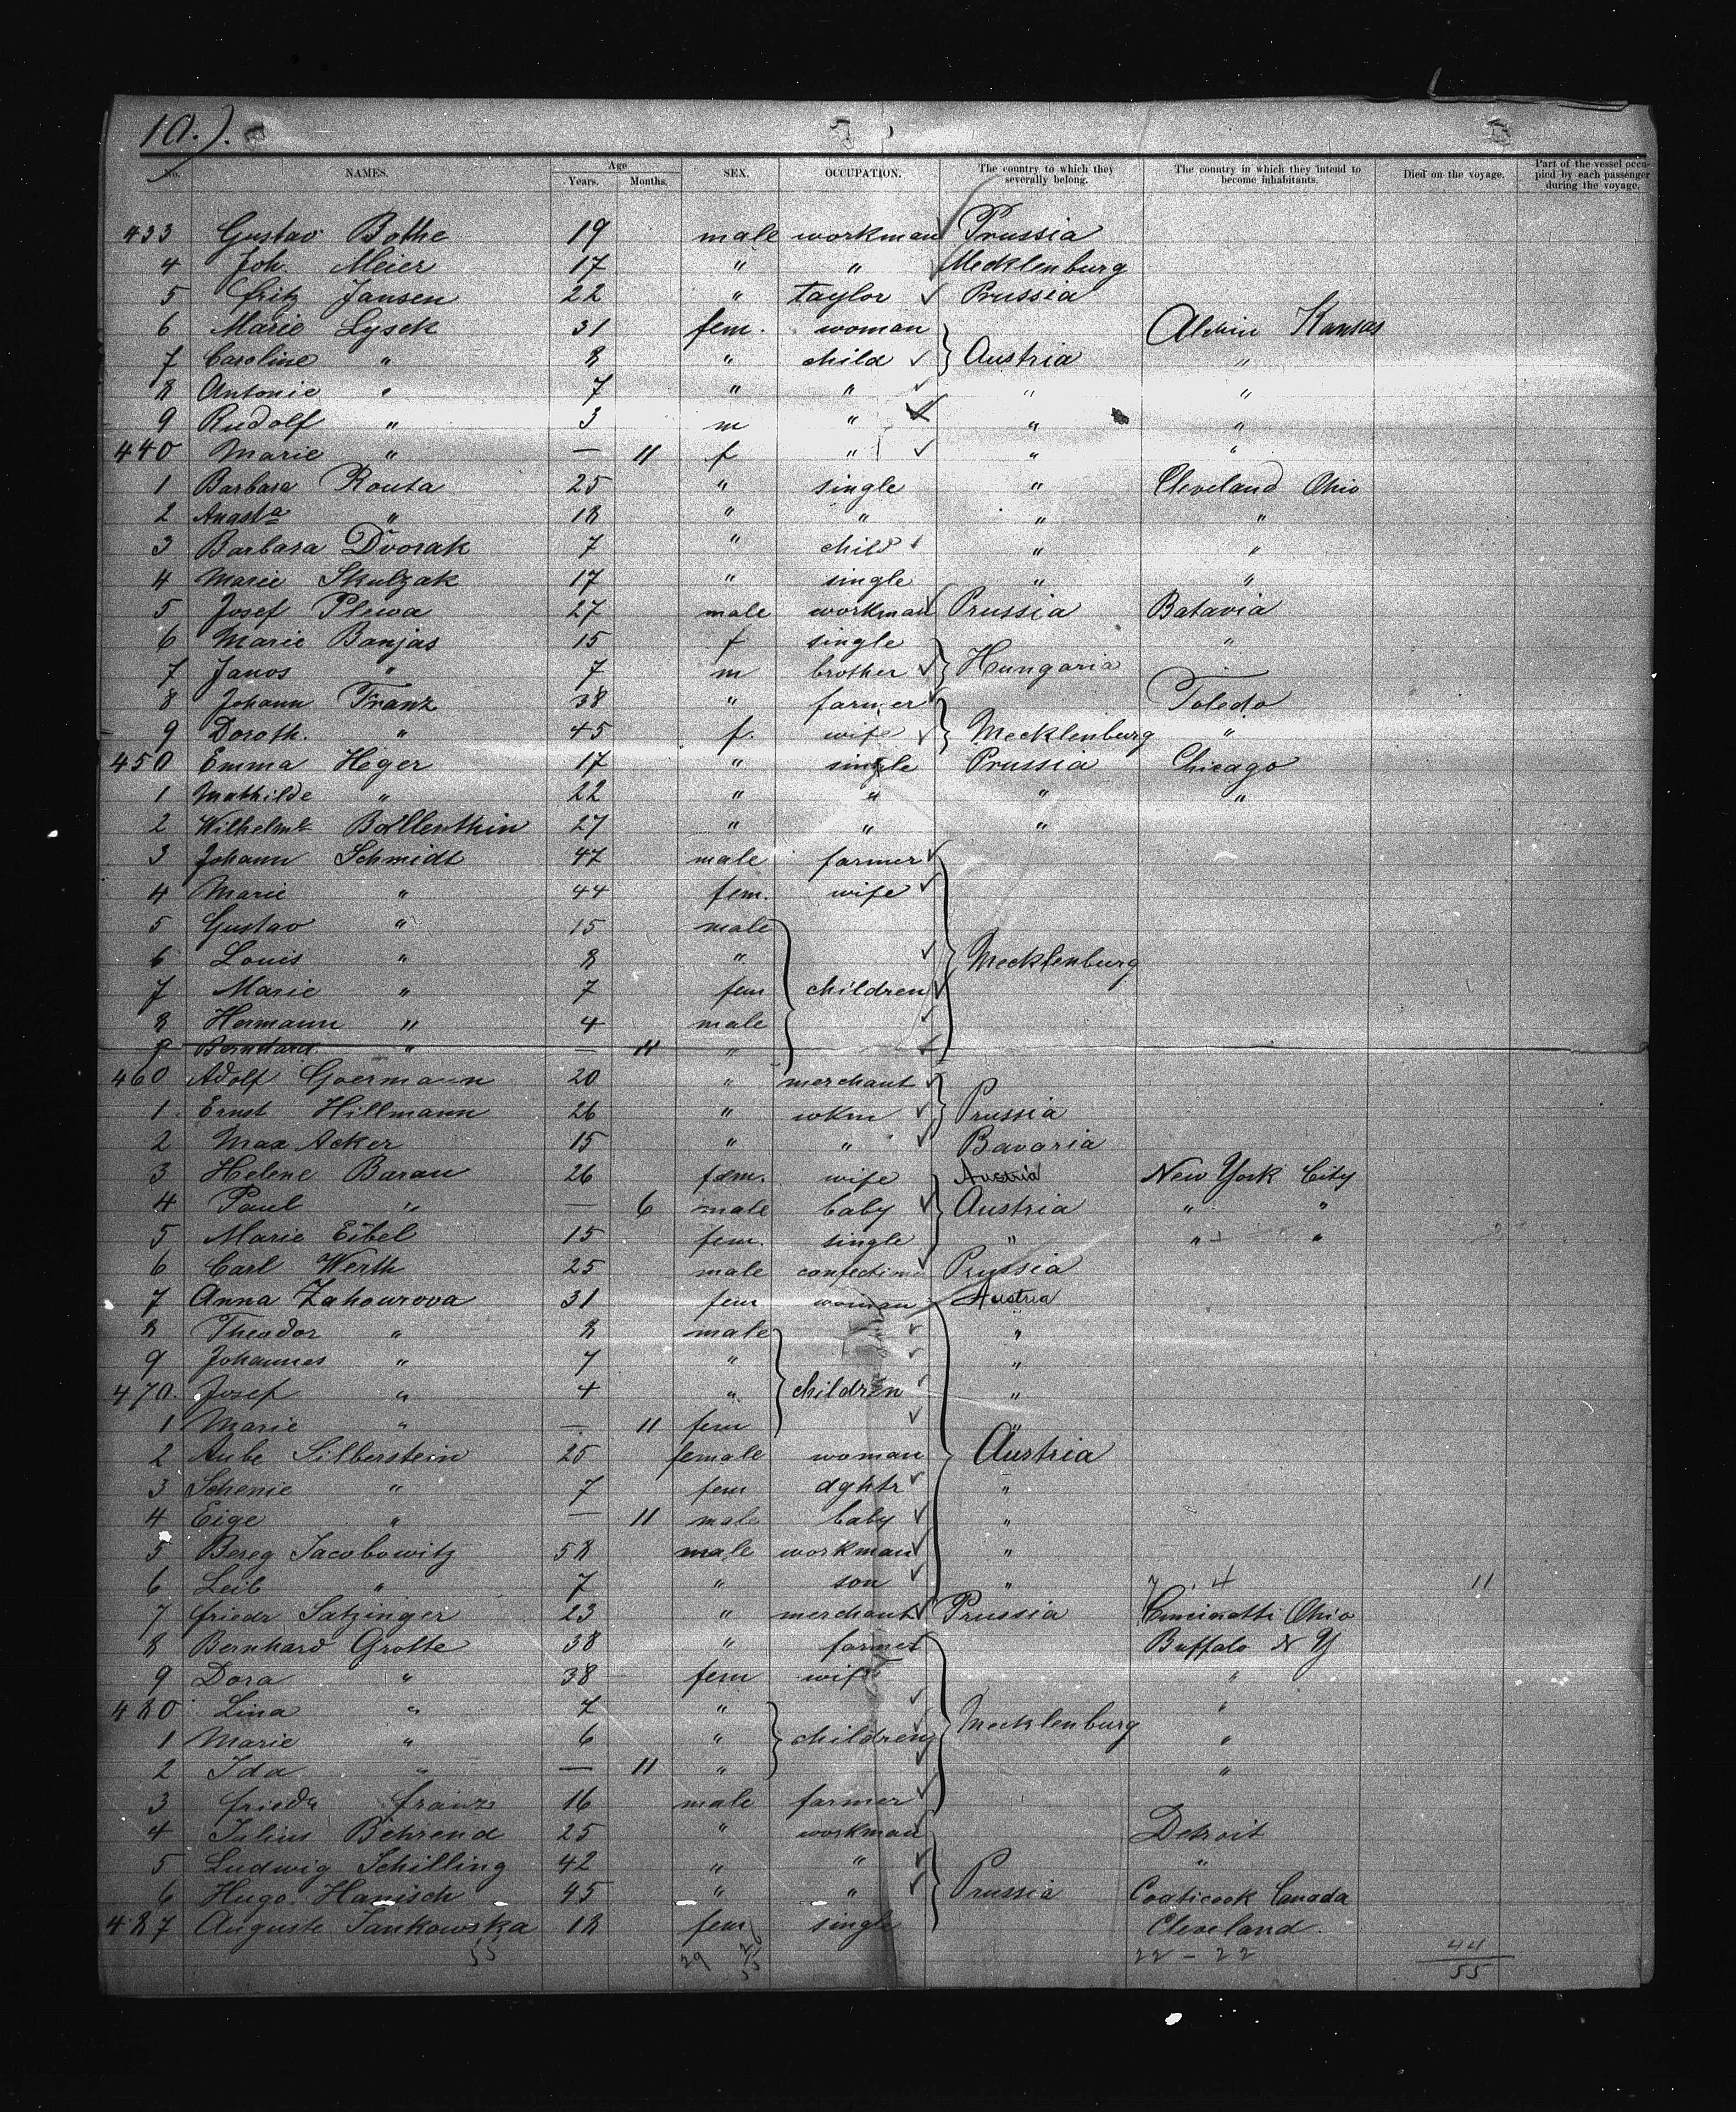 10.).
No. NAMES. Age Years. Months. SEX. OCCUPATION. The country to which they severally belong. The country in which they intend to become inhabitants. Died on the voyage. Part of the vessel occupied by each passenger during the voyage.
433 Gustav Bothe 19 male workman Prussia
4 Joh. Meier 17 " " Mecklenburg
5 Fritz Jansen 22 " taylor Prussia
6 Marie Lysek 31 fem. woman Kansas
7 Caroline " 8 " child Austria "
8 Antonie " 7 " " " "
9 Rudolf " 3 m " " "
440 Marie " — 11 f " " "
1 Barbara Kouta 25 " single " Cleveland Ohio
2 Augsta " 18 " " " "
3 Barbara Dvorak 7 " child " "
4 Marie Skulzak 17 " single " "
5 Josef Plewa 27 male workman Prussia Batavia
6 Marie Banjas 15 f single "
7 Janos " 7 m brother Hungaria
8 Johann Franz 38 " farmer Toledo
9 Doroth. " 45 f. wife Mecklenburg "
450 Emma Heger 17 " single Prussia Chicago
1 Mathilde " 22 " " " "
2 Wilhelme Bollenthin 27 " " "
3 Johann Schmidt 47 male farmer
4 Marie " 44 fem. wife
5 Gustav " 15 male
6 Louis " 8 " Mecklenburg
7 Marie " 7 fem children
8 Hermann " 4 male
9 Bernhard " — 11 "
460 Adolf Goermann 20 " merchant
1 Ernst Hillmann 26 " wkm Prussia
2 Max Acker 15 " " Bavaria
3 Helene Baran 26 fem. wife Austria New York City
4 Paul " — 6 male baby Austria " "
5 Marie Eibel 15 fem. single " " "
6 Carl Werth 25 male confection Prussia
7 Anna Zahourova 31 fem woman Austria
8 Theodor " 8 male "
9 Johannes " 7 " "
470. Josef " 4 " children "
1 Marie " — 11 fem "
2 Aube Silberstein 25 female woman Austria
3 Schenie " 7 fem dghtr "
4 Eige " — 11 male baby "
5 Bereg Jacobowitz 58 male workman "
6 Leib " 7 " son " 4 11
7 Friedr Satzinger 23 " merchant Prussia Cincinatti Ohio
8 Bernhard Grotte 38 " farmer Buffalo N Y
9 Dora " 38 fem wife "
480 Lina " 7 " "
1 Marie " 6 " children Mecklenburg "
2 Ida " — 11 " "
3 Friedr Franz 16 male farmer
4 Julius Behrend 25 " workman Detroit
5 Ludwig Schilling 42 " " "
6 Hugo Hanisch 45 " " Prussia Coaticook Canada
487 Auguste Jankowska 18 fem single Cleveland
55 29 26 55 22 - 22 44
55